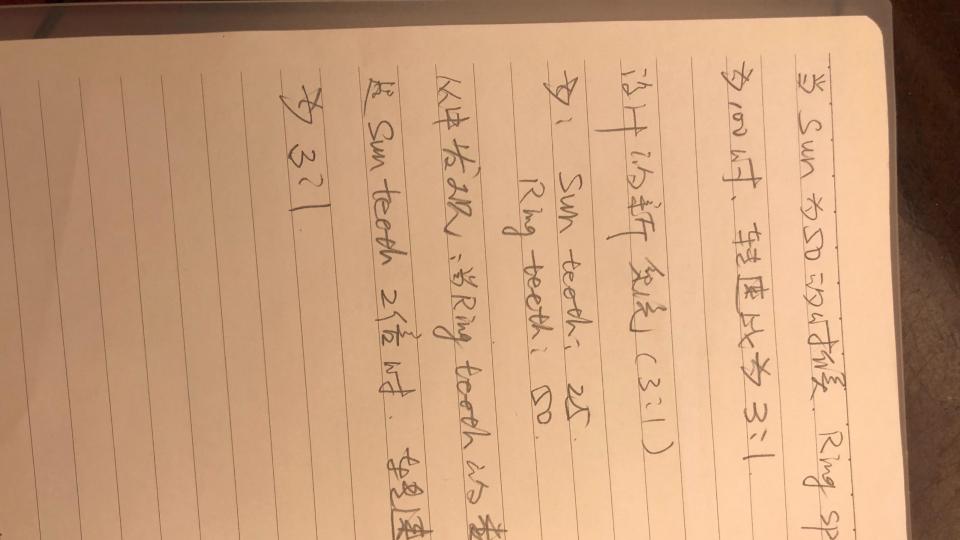 当 Sun 为50的时候. Ring sp
为100时、转速比为3:1
设计的新系统(3:1)
为: Sun teeth: 25.
Ring teeth: 50.
从中发现:当Ring teeth 的数
是 Sun teeth 2倍时. 转速
为 3:1